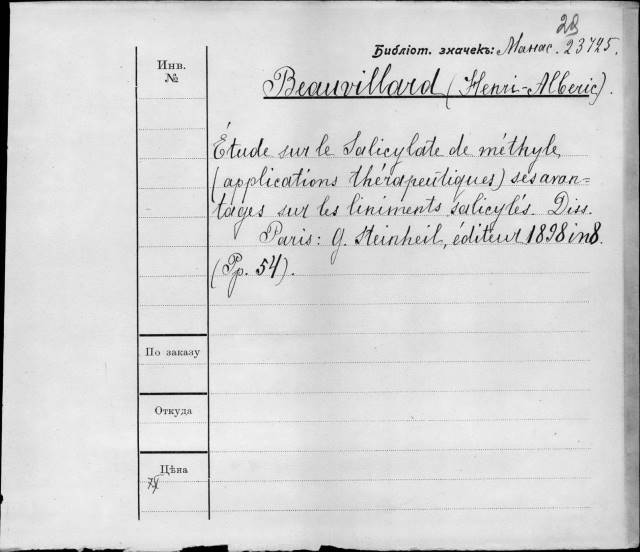 28
Библіот. значекъ: Манас. 23725.
Инв.
№
Beauvillard (Henri-Alberic).
Étude sur le Salicylate de méthyle,
(applications thérapeutiques) ses avan=
tages sur les liniments salicylés. Diss.
Paris: G. Steinheil, éditeur 1898 in 8.
(Pp. 54).
По заказу
Откуда
Цѣна